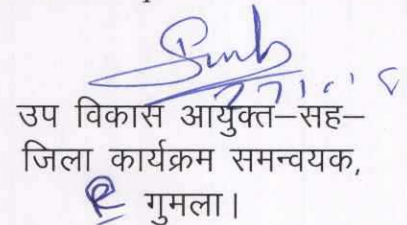 उप विकास आयुक्त–सह–
जिला कार्यक्रम समन्वयक,
गुमला।